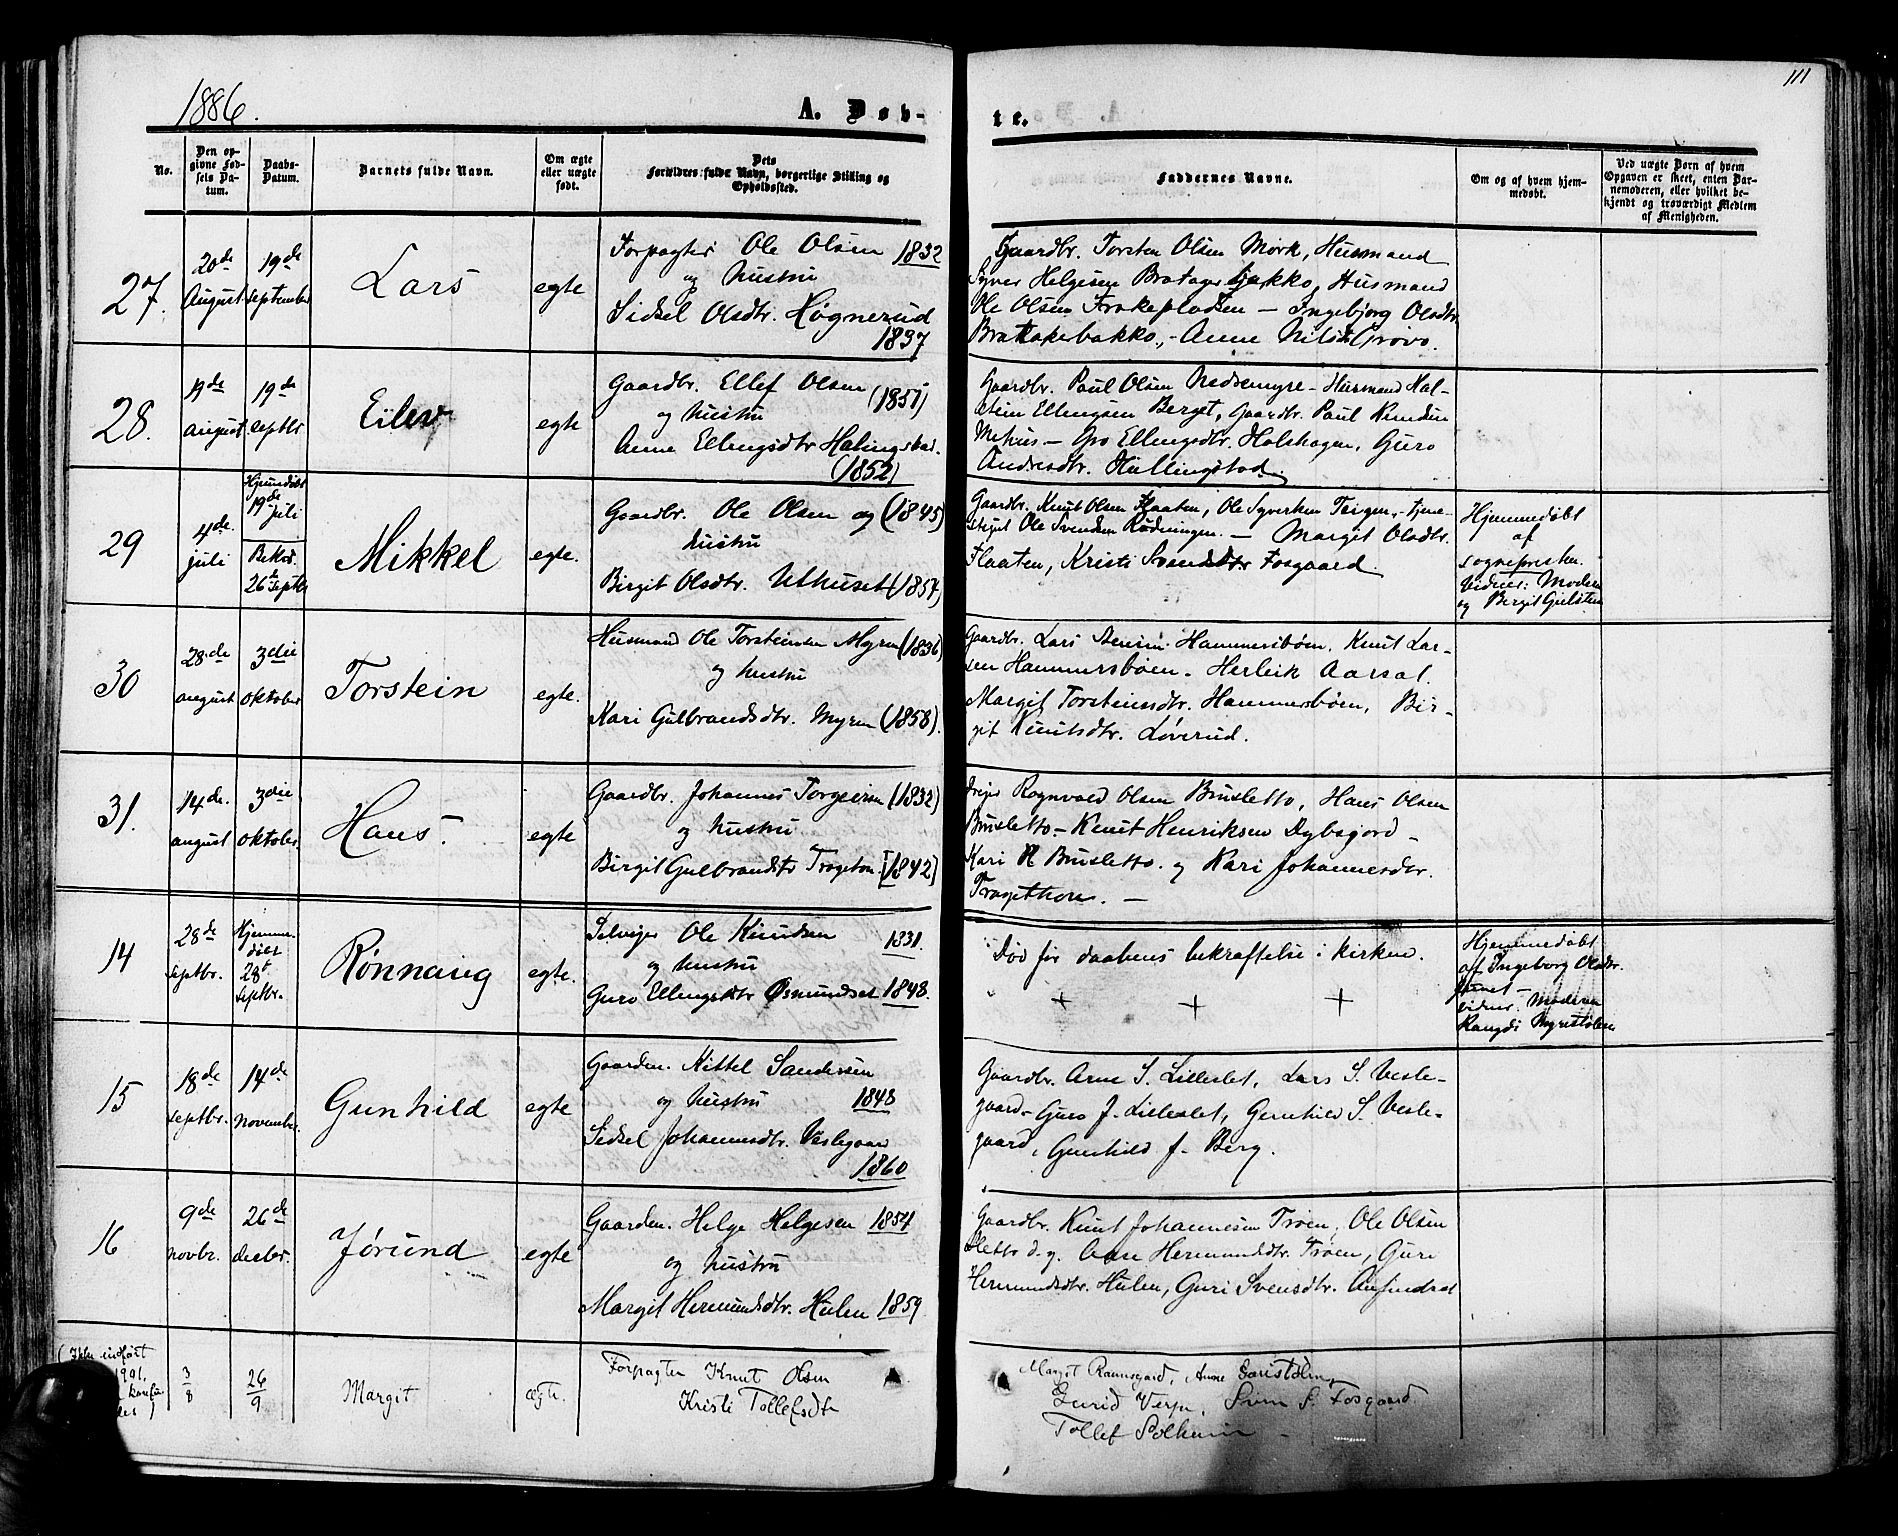 1886.
A. Døb-
te.
111
No.
Den op-
givne Fød-
sels Da-
tum.
Daabs-
Datum.
Barnets fulde Navn.
Om ægte
eller uægte
født.
Dets
Forældres fulde Navn, borgerlige Stilling og
Opholdssted.
Faddernes Navne.
Om og af hvem hjem-
medøbt.
Ved uægte Børn af hvem
Opgaven er skeet, enten Bar-
nemoderen, eller hvilket be-
kjendt og troværdigt Medlem
af Menigheden.
27.
20de
August
19de
September
Lars
egte
Forpagter Ole Olsen 1832
og hustru
Sidsel Olsdtr. Høgnerud
1837
Gaardbr. Torsten Olsen Mørk, Husmand
Syver Helgesen Husmand
Ole Olsen - Ingebjørg Olsdtr.
Anne
28.
19de
august
19de
septbr
Eilev
egte
Gaardbr. Ellef Olsen (1851)
og hustru
Anne Ellingsdtr
(1852)
Gaardbr. Paul Olsen Nedremyre - Husmand Hal-
stein Ellingsen Berget, Gaardbr. Paul
Gro Ellingsdtr. Guro
Andresdtr. Hallingstad.
29
4de
juli
Hjemdøbt
19de
juli
Bekr.
26de septbr
Mikkel
egte.
Gaardbr. Ole Olsen og (1845)
hustru
Birgit Olsdtr. Uthuset (1854)
Gaardbr. Knut Olsen Flaaten, Ole Syversen Teigen, tjene-
Ole Svendsen - Marget Olsdtr.
Flaaten, Kristi Svendsdtr Fosgaard.
Hjemmedøbt
af
sognepresten.
Vidner: Moderen
og Birgit
30
28de
august
3die
oktober
Torstein
egte.
Husmand Ole Torsteinsen Myren (1836)
og hustru
Kari Gulbrandsdtr. Myren (1858).
Gaardbr. Lars Hammersbøen, Knut Lar-
sen Hammersbøen. Herleik
Margit Torsteinsdtr. Hammersbøen, Bir-
git Knutsdtr. Løverud.
31.
14de.
august
3die
oktober.
Hans.
egte
Gaardbr. Johannes Torgeirsen (1832)
og hustru
Birgit Gulbrandsdtr Trageton [1842]
Rognvald Olsen Brusletto, Hans Olsen
Brusletto - Knut Henriksen Dybsjord -
Kari Brusletto. og Kari Johannesdtr.
14
28de
septbr.
Hjemme-
døbt
28de
septbr.
Rønnaug
egte.
Selveier Ole Knudsen 1831.
og hustru
Guro Ellingsdtr Øsmundset 1848.
Død før daabens bekræftelse i kirken.
+ + +
Hjemmedøbt
af Ingeborg Olsdtr.
vidner: Moderen
15
18de
septbr.
14de
november.
Gunhild
egte
Gaardm. Kittel Sandersen
og hustru 1848
Sidsel Johannesdtr. Veslegaard
1860
Gaardbr. Arne S. Lilleslet, Lars S. Vesle-
gaard - Guro J. Lilleslet, Gunhild S. Vesle-
gaard, Gunhild J. Berg.
16
9de
novbr.
26de
decbr.
Jørund
egte
Gaardm. Helge Helgesen 1854
og hustru
Margit Hermundsdtr. Hulen 1859.
Gaardbr. Knut Johannesen Trøen, Ole Olsen
Hermundsdtr. Trøen, Guri
Hermundsdtr. Hulen, Guri Svensdtr.
(Ikke indført
3
8
26
9
Margit
ægte.
Forpagter Knut Olsen
Kristi Tollefsdtr
Margit Anne
Gurid Sven S. Fosgaard
Tollef Solheim